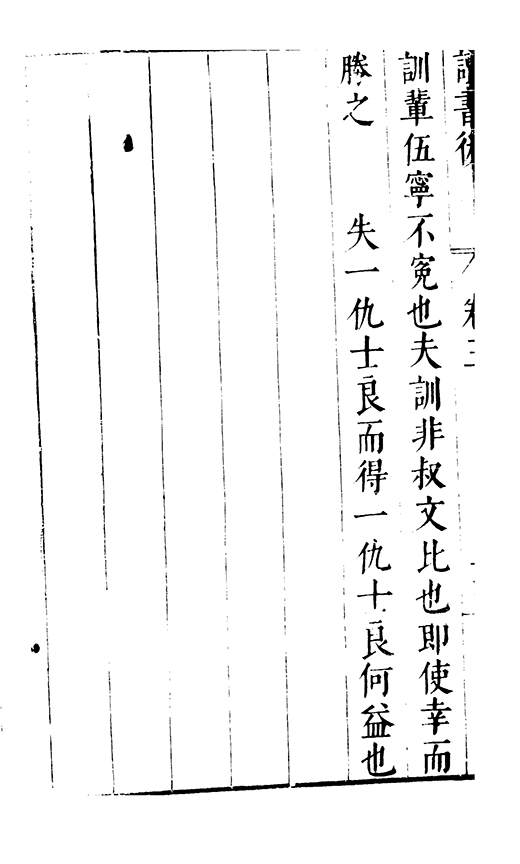 讀書後 卷三
訓輩伍寧不冤也夫訓非叔文比也即使幸而
勝之 失一仇士良而得一仇士良何益也